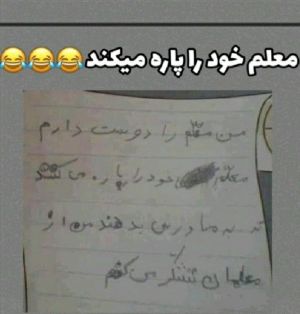 معلم خود را پاره میکند 😂😂😂
من معلم را دوست دارم
معلم خود را پاره می کند
تا به ما درس بدهند من از
معلمان تشکر می کنم